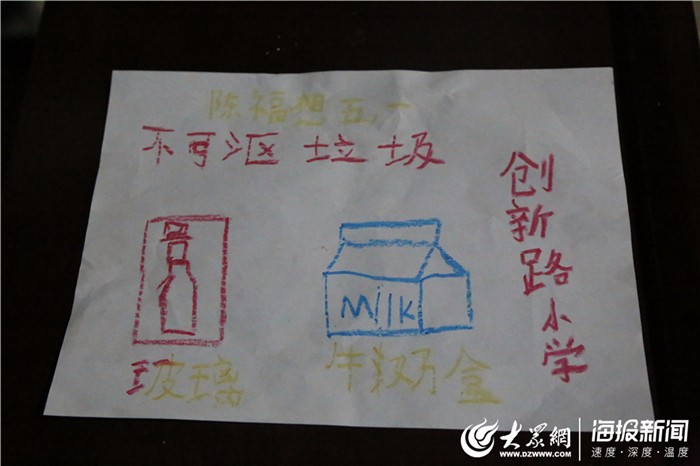 陈福想五.一
不可沤垃圾
创新路小学
Milk
玻璃
牛奶盒
大众網
www.dzwww.com
海报新闻
速度·深度·温度